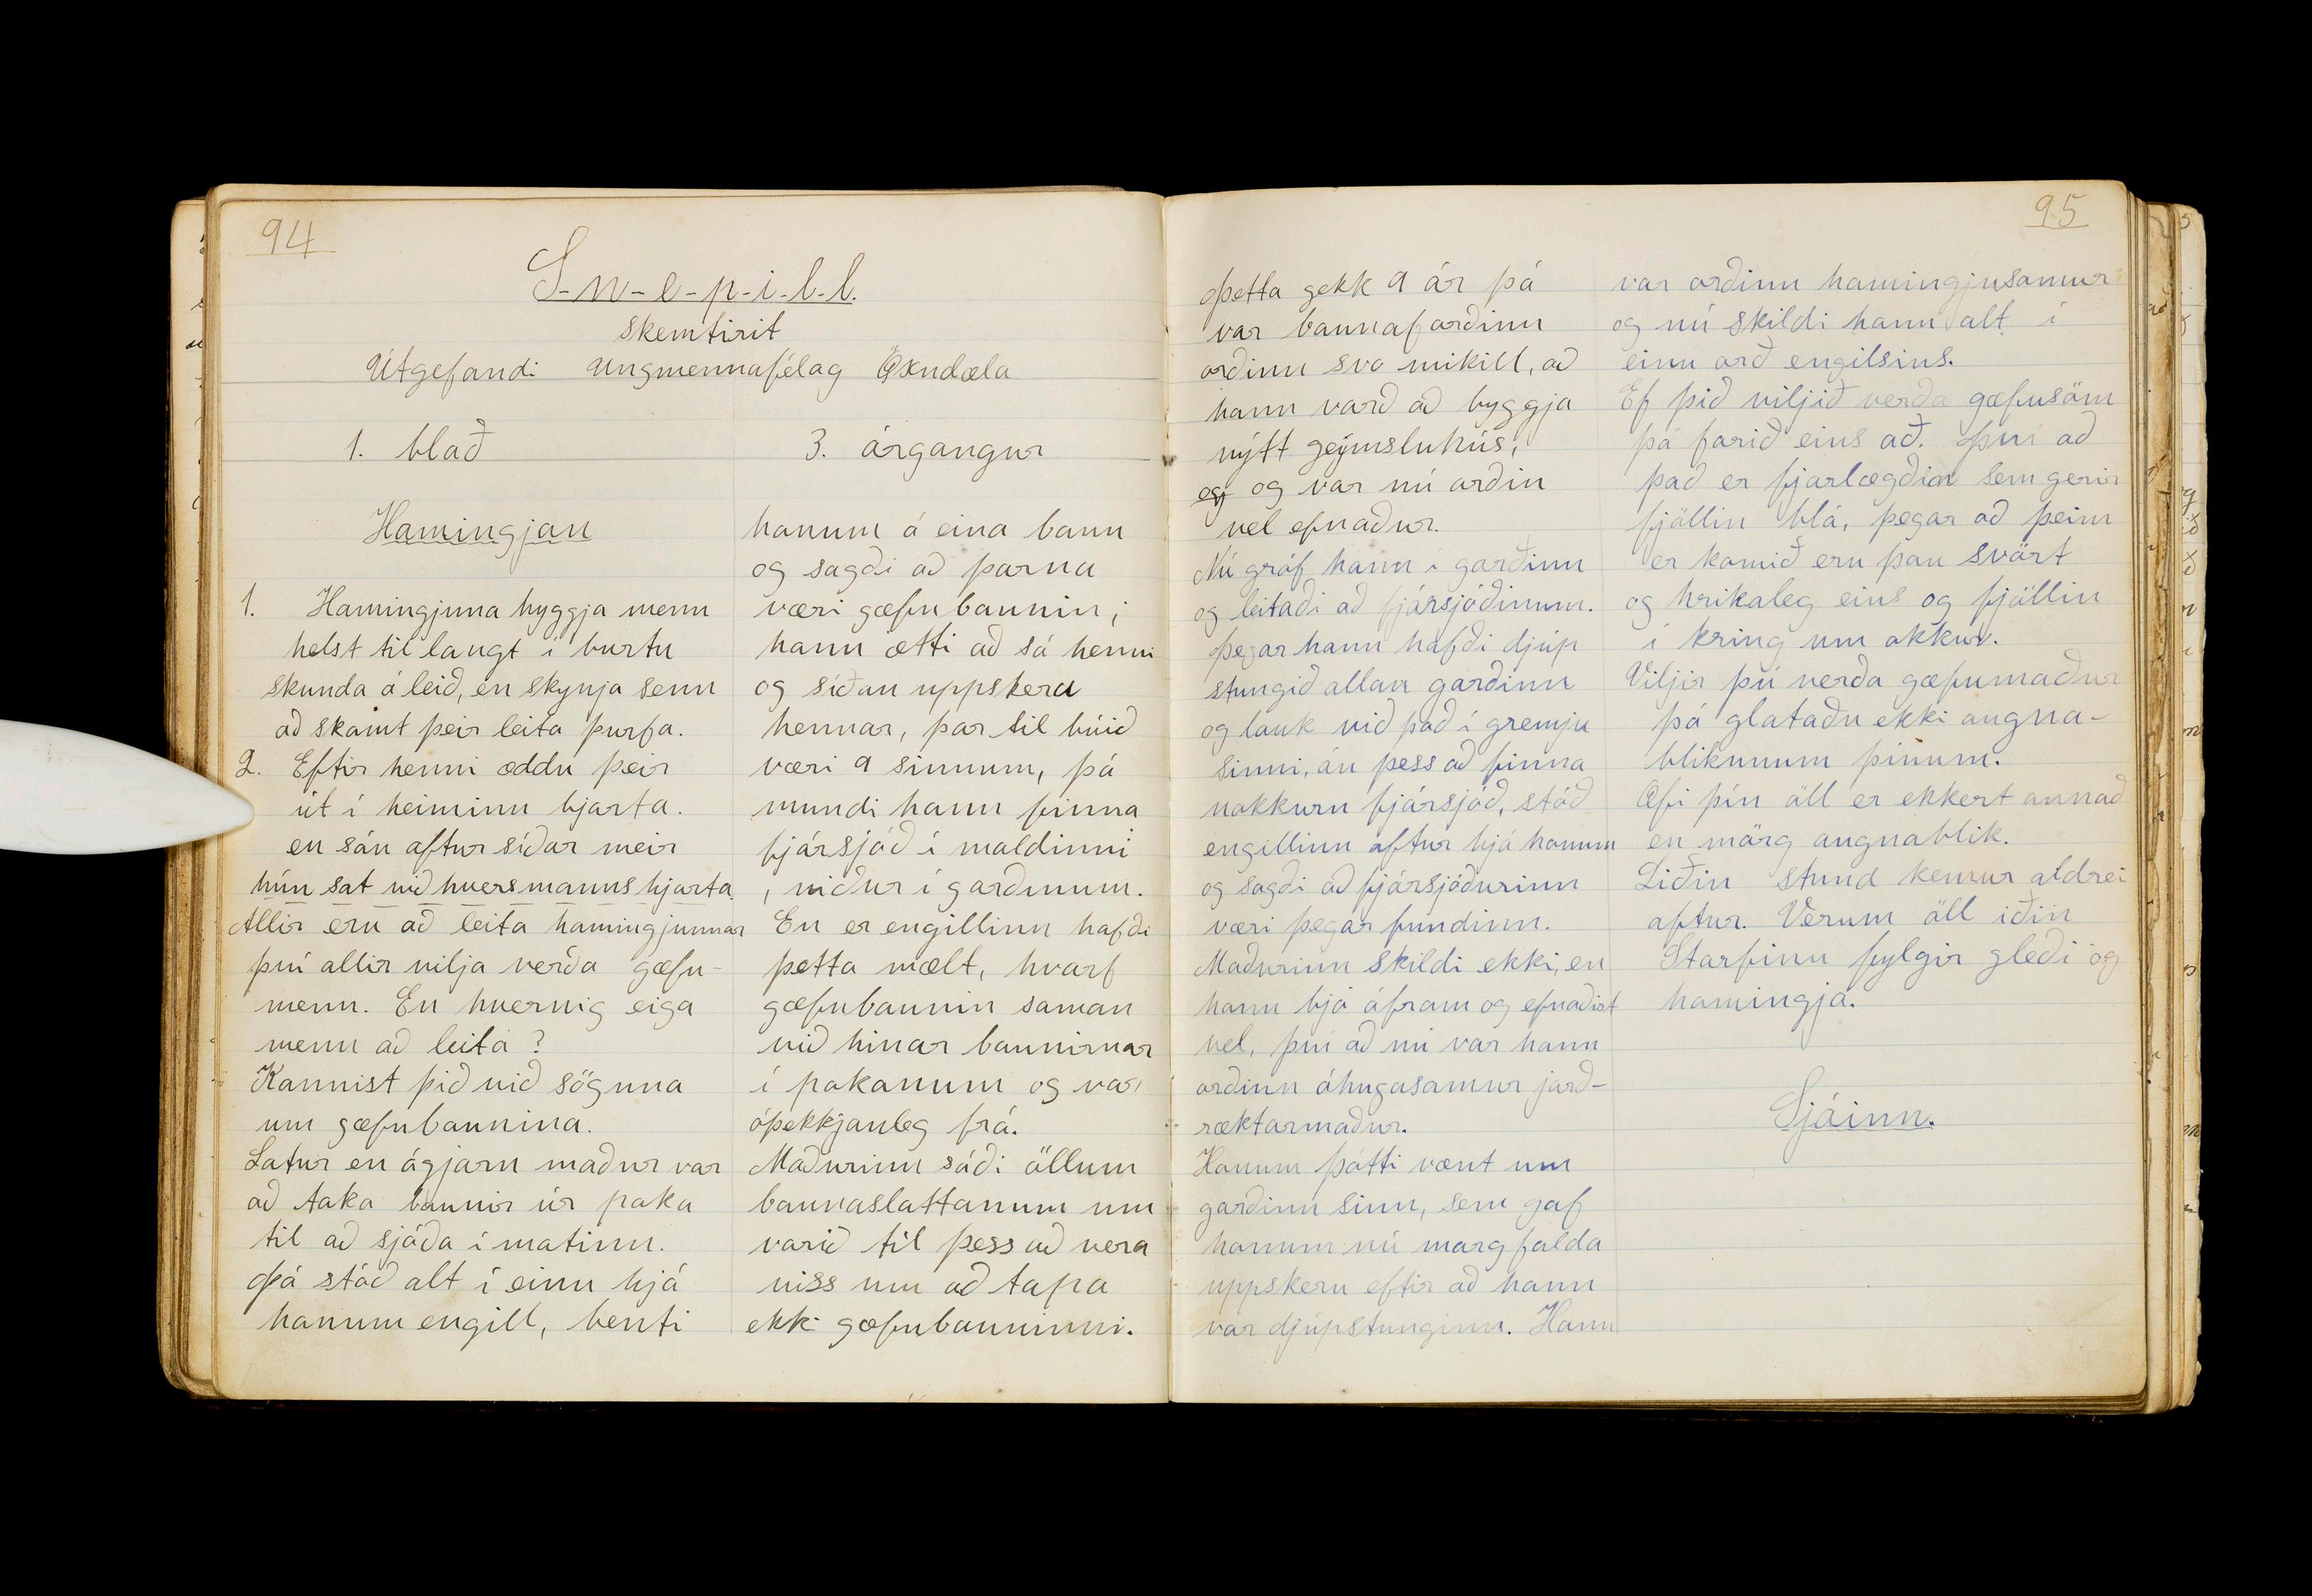 94
S-n-e-p-i-l-l.
skemtirit
Útgefandi Ungmennafélag Öxndæla
1. blað 3. árgangur
Hamingjan
1. Hamingjuna hyggja menn
helst til langt í burtu
skunda á leið, en skynja senn
að skamt þeir leita þurfa.
2. Eftir henni æddu þeir
út í heiminn bjarta.
en sáu aftur síðar meir
hún sat við hvers manns hjarta.
Allir eru að leita hamingjunnar
því allir vilja verða gæfu-
menn. En hvernig eiga
menn að leita?
Kannist þið við söguna
um gæfubaunina.
Latur en ágjarn maður var
að taka baunir úr poka
til að sjóða í matinn.
Þá stóð alt í einu hjá
honum engill, benti
honum á eina baun
og sagði að þarna
væri gæfubaunin;
hann ætti að sá henni
og síðan uppskera
hennar, þar til búið
væri 9 sinnum, þá
mundi hann finna
fjársjóð í moldinni
, niður í garðinum.
En er engillinn hafði
þetta mælt, hvarf
gæfubaunin saman
við hinar baunirnar
í pokanum og var
óþekkjanleg frá.
Maðurinn sáði öllum
baunaslattanum um
vorið til þess að vera
viss um að tapa
ekki gæfubauninni.
95
Þetta gekk 9 ár þá
var baunaforðinn
orðinn svo mikill, að
hann varð að byggja
nýtt geymsluhús,
og og var nú orðin
vel efnaður.
Nú gróf hann í garðinn
og leitaði að fjársjóðinum.
Þegar hann hafði djúp
stungið allan garðinn
og lauk við það í gremju
sinni, án þess að finna
nokkurn fjársjóð, stóð
engillinn aftur hjá honum
og sagði að fjársjóðurinn
væri þegar fundinn.
Maðurinn skildi ekki, en
hann bjó áfram og efnaðist
vel, því að nú var hann
orðinn áhugasamur jarð-
ræktarmaður.
Honum þótti vænt um
garðinn sinn, sem gaf
honum nú margfalda
uppskeru eftir að hann
var djúpstunginn. Hann
var orðinn hamingjusamur
og nú skildi hann alt í
einu orð engilsins.
Ef þið viljið verða gæfusöm
þá farið eins að. Því að
það er fjarlægðin sem gerir
fjöllin blá, þegar að þeim
er komið eru þau svört
og hrikaleg eins og fjöllin
í kring um okkur.
Viljir þú verða gæfumaður
þá glataðu ekki augna-
blikunum þínum.
Æfi þín öll er ekkert annað
en mörg augnablik.
Liðin stund kemur aldrei
aftur. Verum öll iðin
Starfinu fylgir gleði og
hamingja.
Sjáinn.